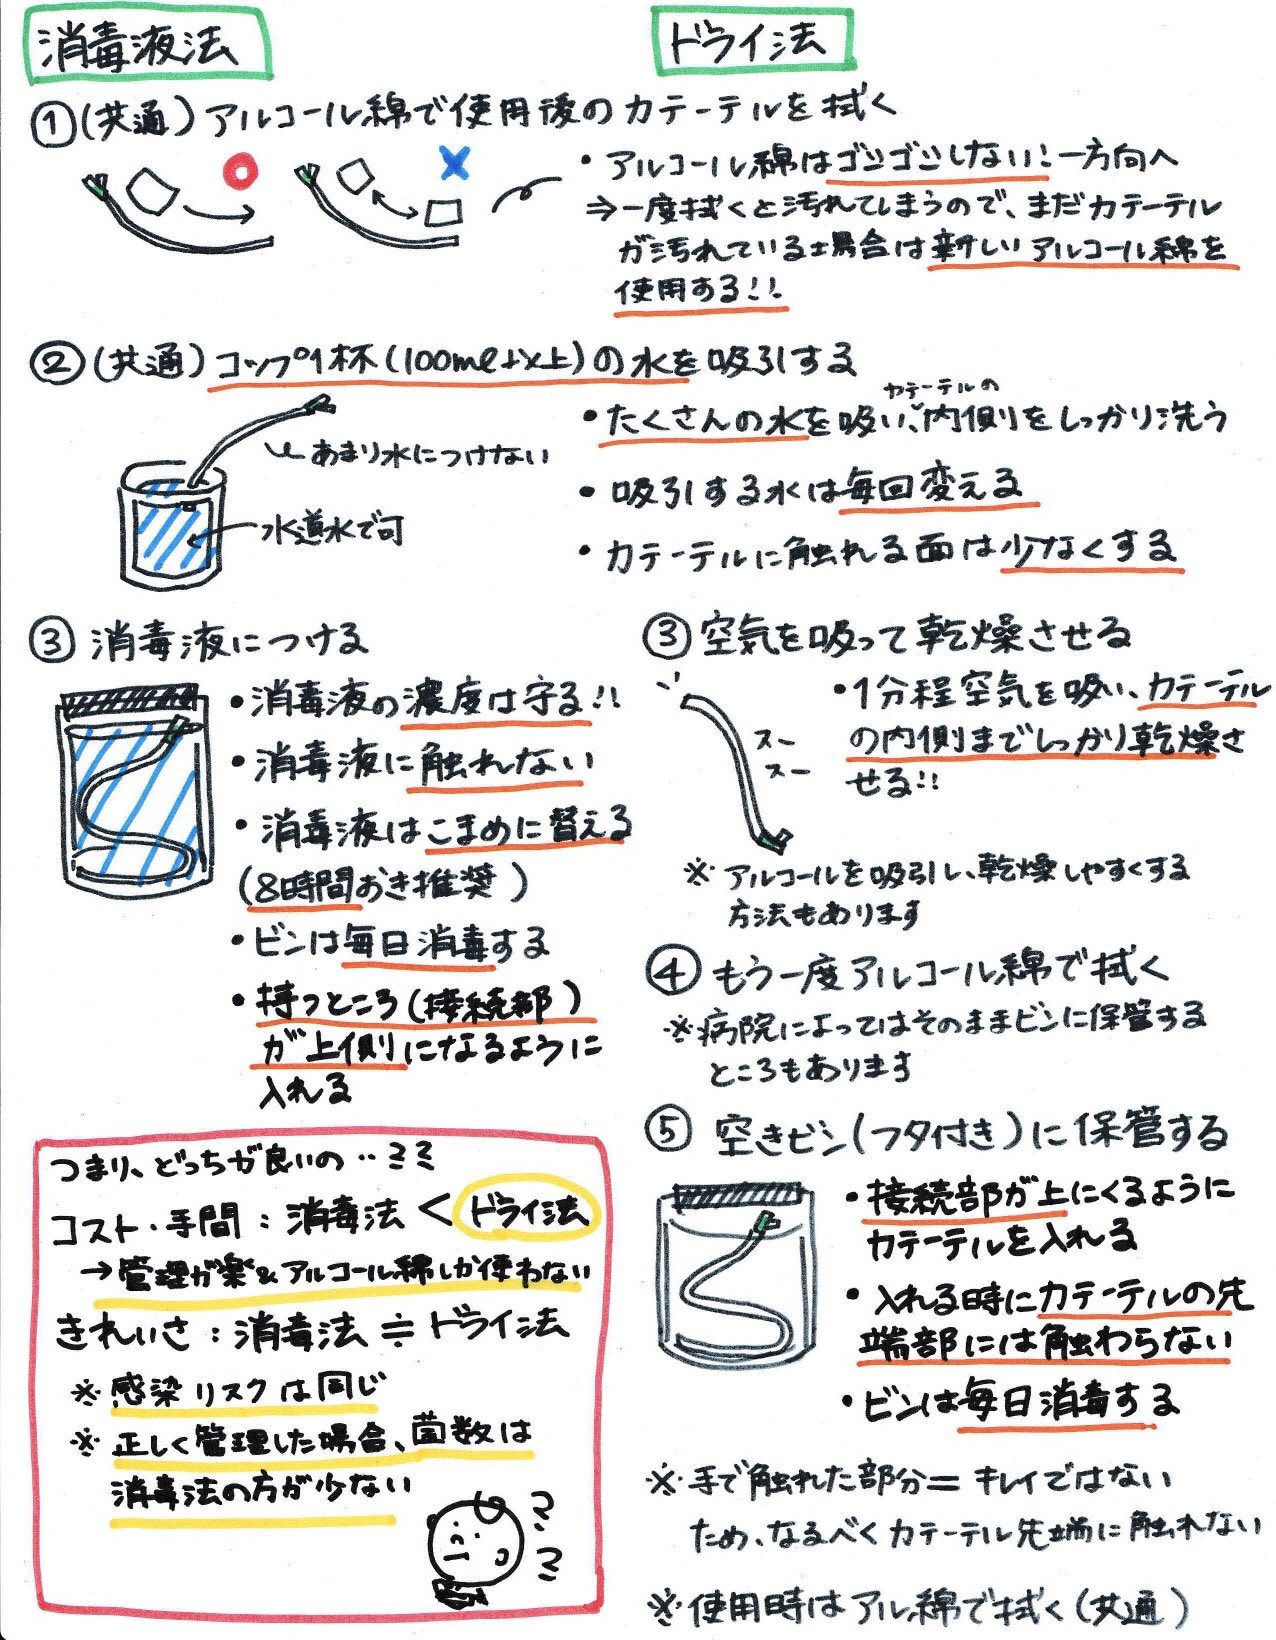 消毒液法
ドライ法
①(共通)アルコール綿で使用後のカテーテルを拭く
・アルコール綿はゴシゴシしない!一方向へ
⇒一度拭くと汚れてしまうので、まだカテーテル
が汚れている場合は新しいアルコール綿を
使用する!!
②(共通)コップ1杯(100ml以上)の水を吸引する
あまり水につけない
水道水で可
・たくさんの水を吸い、カテーテルの内側をしっかり洗う
・吸引する水は毎回変える
・カテーテルに触れる面は少なくする
③消毒液につける
・消毒液の濃度は守る!!
・消毒液に触れない
・消毒液はこまめに替える
(8時間おき推奨)
・ビンは毎日消毒する
・持つところ(接続部)
が上側になるように
入れる
③空気を吸って乾燥させる
スー
スー
・1分程空気を吸い、カテーテル
の内側までしっかり乾燥さ
せる!!
※アルコールを吸引し、乾燥しやすくする
方法もあります
④もう一度アルコール綿で拭く
※病院によってはそのままビンに保管する
ところもあります
⑤空きビン(フタ付き)に保管する
・接続部が上にくるように
カテーテルを入れる
・入れる時にカテーテルの先
端部には触わらない
・ビンは毎日消毒する
※手で触れた部分=キレイではない
ため、なるべくカテーテル先端に触れない
※使用時はアル綿で拭く(共通)
つまり、どっちが良いの‥ミミ
コスト・手間:消毒法<ドライ法
→管理が楽&アルコール綿しか使わない
きれいさ:消毒法≒ドライ法
※感染リスクは同じ
※正しく管理した場合、菌数は
消毒法の方が少ない